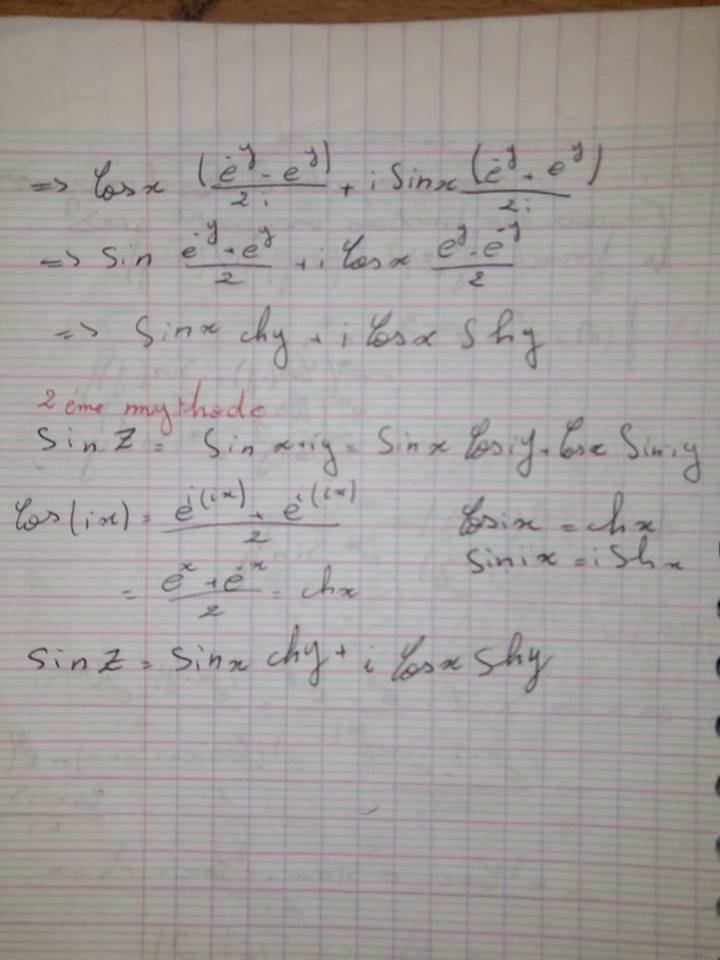 => Cosx (e^-y - e^y)/2i + i Sinx (e^-y + e^y)/2i
=> Sin (e^-y + e^y)/2 + i Cosx (e^y - e^-y)/2
=> Sinx chy + i Cosx Shy
2 éme mythode
Sin Z = Sin x+iy = Sinx Cosiy + Cosx Siniy
Cos(ix) = (e^i(ix) + e^-i(ix))/2 Cosix = chx
Sinix = i Shx
= (e^x + e^-x)/2 = chx
Sin Z = Sinx chy + i Cosx Shy